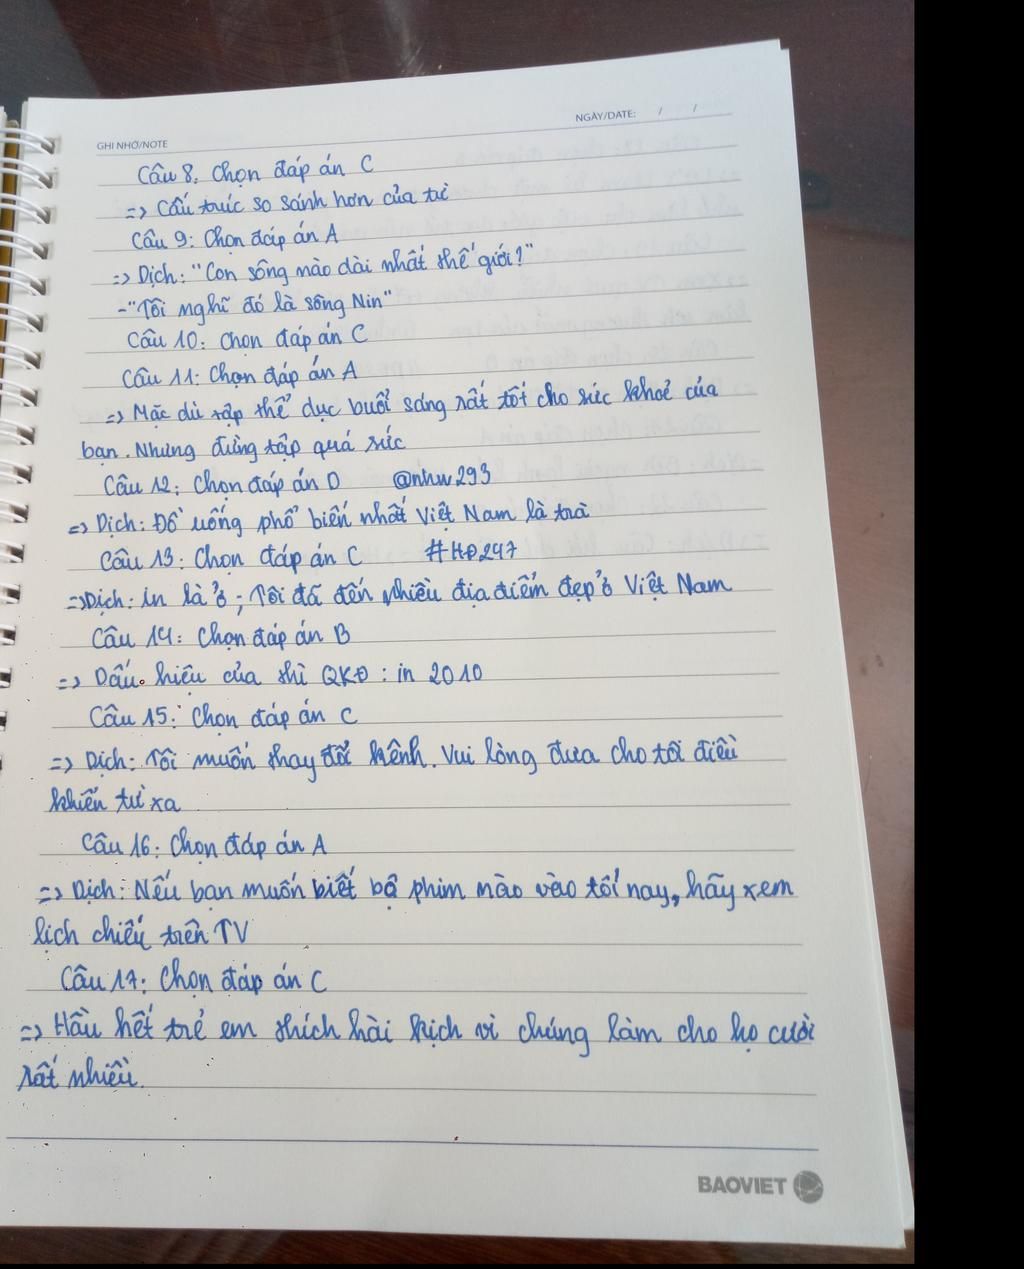 GHI NHỚ/NOTE
NGÀY/DATE: / /
Câu 8. Chọn đáp án C
=> Cấu trúc so sánh hơn của từ
Câu 9: Chọn đáp án A
=> Dịch: "Con sông nào dài nhất thế giới?"
-"Tôi nghĩ đó là sông Nin"
Câu 10: Chọn đáp án C
Câu 11: Chọn đáp án A
=> Mặc dù tập thể dục buổi sáng rất tốt cho sức khoẻ của
bạn. Nhưng đừng tập quá sức
Câu 12: Chọn đáp án D @nhw293
=> Dịch: Đồ uống phổ biến nhất Việt Nam là trà
Câu 13: Chọn đáp án C #HĐ247
=> Dịch: in là ở; Tôi đã đến nhiều địa điểm đẹp ở Việt Nam
Câu 14: Chọn đáp án B
=> Dấu hiệu của thì QKĐ: in 2010
Câu 15: Chọn đáp án C
=> Dịch: Tôi muốn thay đổi kênh. Vui lòng đưa cho tôi điều
khiển từ xa
Câu 16: Chọn đáp án A
=> Dịch: Nếu bạn muốn biết bộ phim nào vào tối nay, hãy xem
lịch chiếu trên TV
Câu 17: Chọn đáp án C
=> Hầu hết trẻ em thích hài kịch vì chúng làm cho họ cười
rất nhiều.
BAOVIET